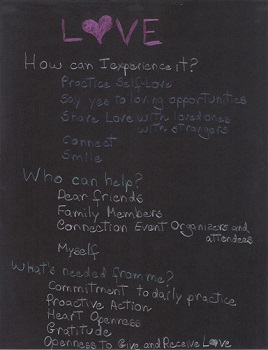 LOVE
How can I experience it?
Practice Self-Love
Say yes to loving opportunities
Share Love with loved ones
with strangers
Connect
Smile
Who can help?
Dear friends
Family Members
Connection Event Organizers and
attendees
Myself
What's needed from me?
Commitment to daily practice
Proactive Action
Heart Openness
Gratitude
Openness To Give and Receive Love